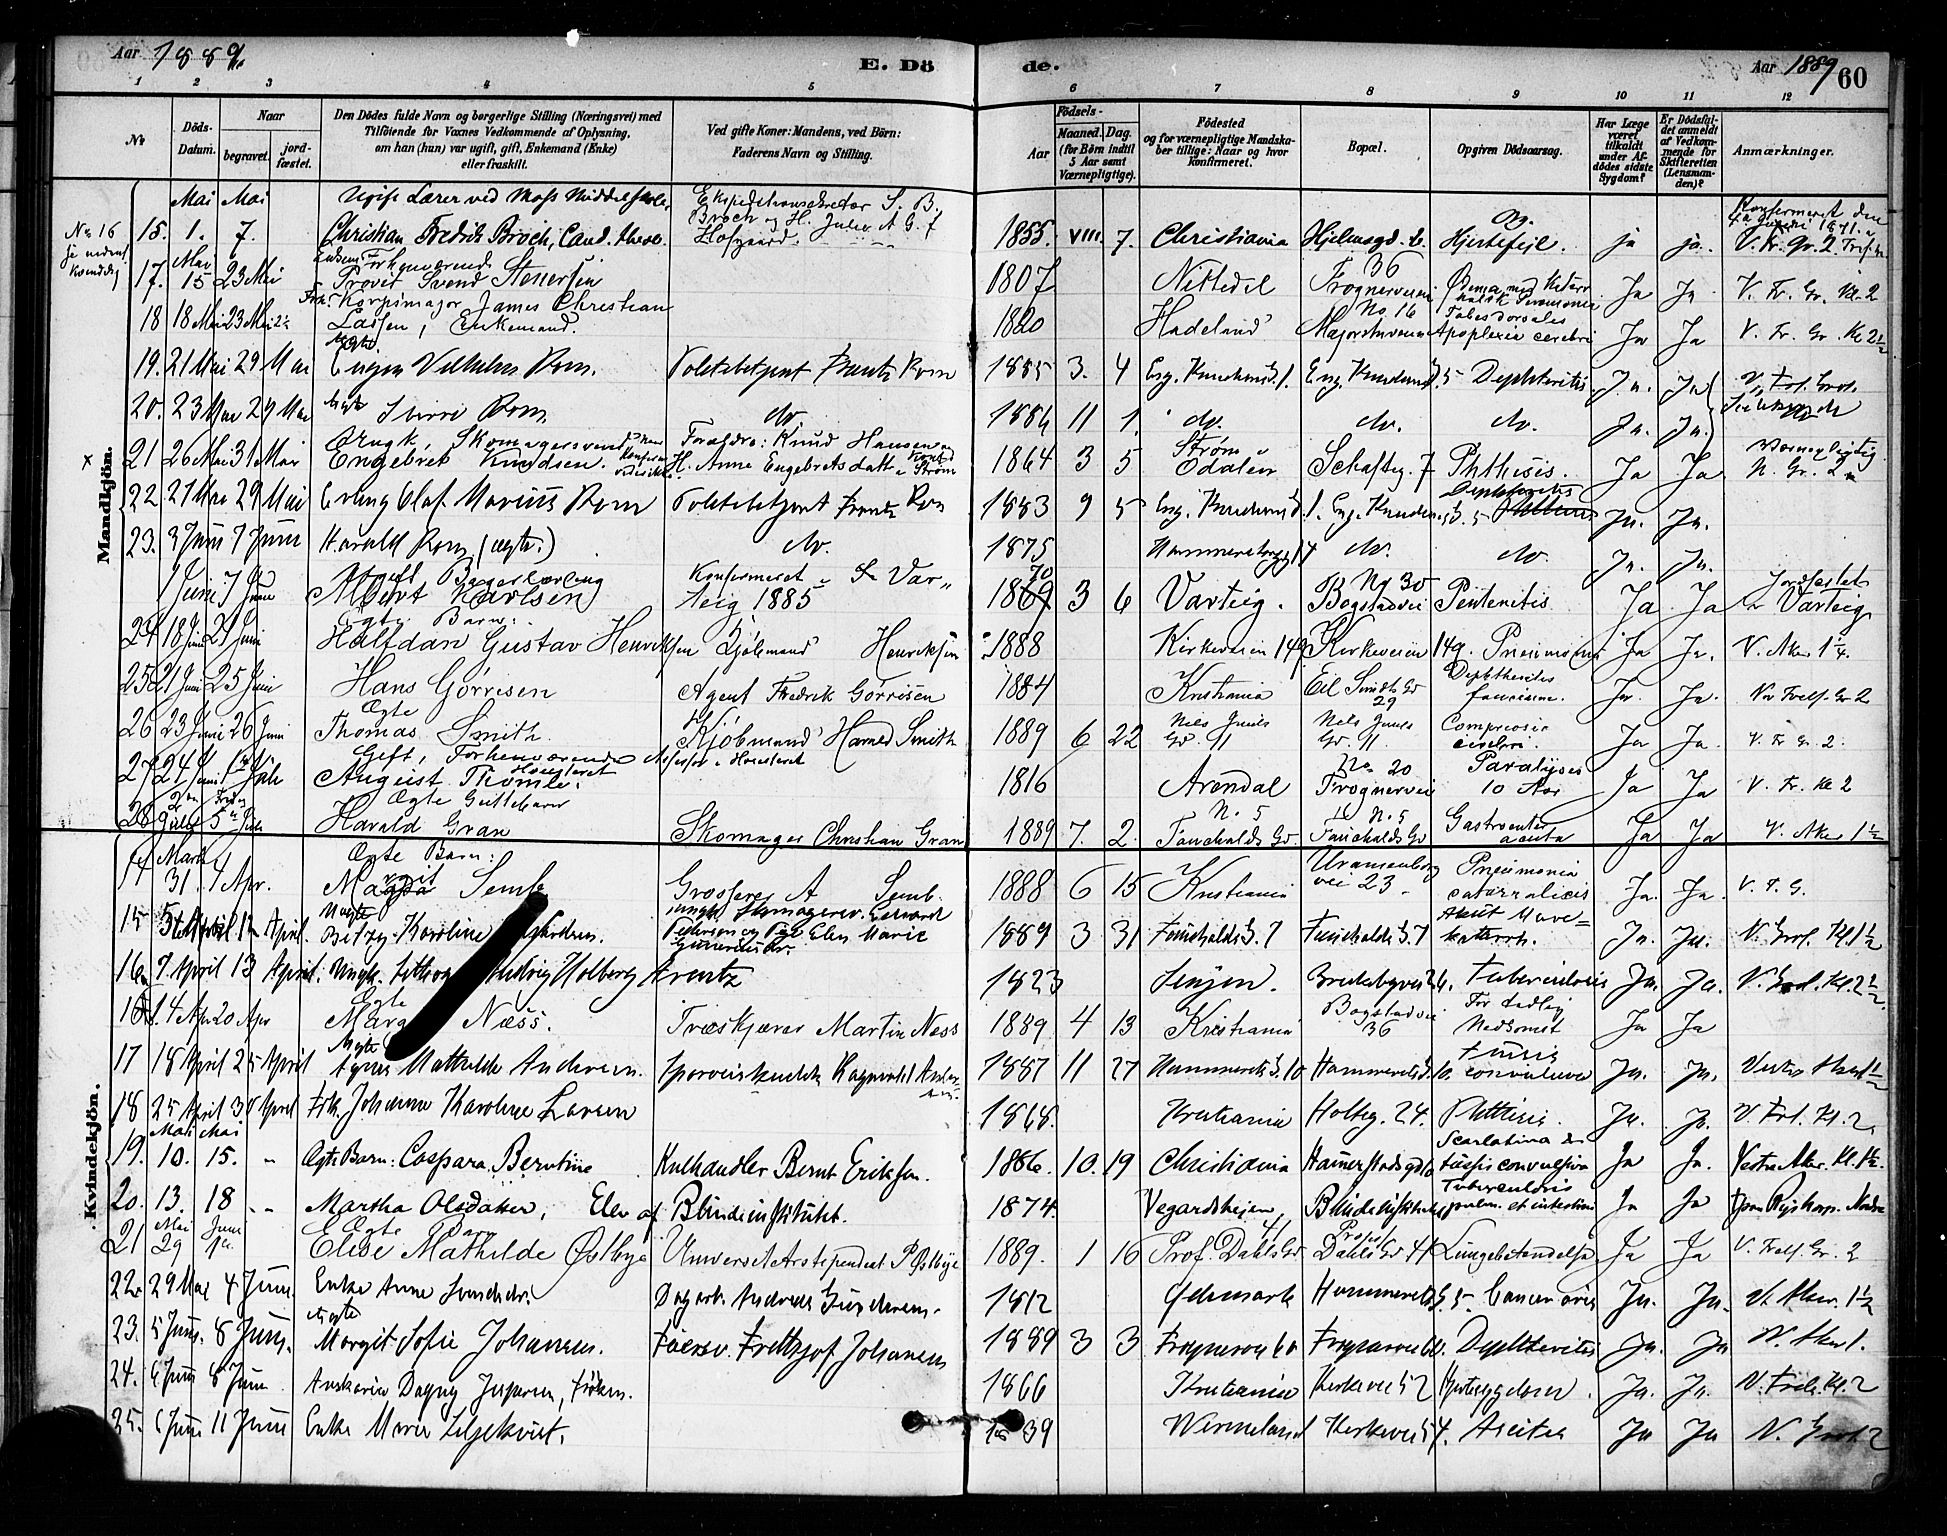 Aar 1889.
E. Dö
de.
Aar 1889
60
1 2 3 4 5 6 7 8 9 10 11 12
No
Döds-Datum.
Naar
begravet.
jord-fæstet.
Den Dödes fulde Navn og borgerlige Stilling (Næringsvei) med
Tilföiende for Voxnes Vedkommende af Oplysning,
om han (hun) var ugift, gift, Enkemand (Enke)
eller fraskilt.
Ved gifte Koner: Mandens, ved Börn:
Faderens Navn og Stilling.
Födsels-
Aar
Maaned. Dag.
(for Börn indtil
5 Aar samt
Værnepligtige).
Födested
og for værnepligtige Mandska-
ber tillige: Naar og hvor
konfirmeret.
Bopæl.
Opgiven Dödsaarsag.
Har Læge
været
tilkaldt
under Af-
dödes sidste
Sygdom?
Er Dödsfal-
det anmeldt
af Vedkom-
mende for
Skifteretten
(Lensman-
den)?
Anmærkninger.
Mandkjön.
No 16 se nederst Kvindekj
Mai Mai
Ugift Lærer ved Moss Middelskole,
15. 1. 7. Christian Fredrik Broch, Cand. theol. Ekspeditionssekretær S. B. Broch og H. Julie A G f Hofgaard. 1855. VIII. 7. Christiania Hjelmsgd. Org. Hjertefejl. ja ja. Konfirmeret den V. Fr. Gr. 2.
17. Mai 15 23 Mai Forhenværend. Provst Svend Stenersen 1807 Nittedal 36 Frognerveien Ødema med Ja Ja V. Fr. Gr. Kl. 2
18 18 Mai 23 Mai Korpsmajor James Christian Lassen, Enkemand. 1820 Hadeland No. 16 Majorstuveien Tabes dorsales Apoplexia cerebri Ja Ja V. Fr. Gr. Kl 2½
19. 21 Mai 29 Mai Ægte Vilhelm Rom. Toldbetjent Frantz Rom 1885 3. 4 Eng. Knudsens G. 1. Eng. Knudsens G. 5 Diphteritis Ja. Ja
20. 23 Mai 29 Mai Ægte Rom do. 1886 11 1. do. do. do. Ja. Ja.
x 21 26 Mai 31 Mai Ungk. Skomagersvend Engebret Knudsen. Forældre: Knud Hansen og H. Anne Engebretsdatt. Strøm 1864 3 5 Strøm i Odalen Schaftg. 7 Phthisis. Ja Ja Værnepligtig N. Gr. 2
22 27 Mai 29 Mai Olaf Marius Rom Toldbetjent Frantz Rom 1883 9 5 Eng. Knudsens G. 1. Eng. Knudsens G. 5 Diphteritis Ja. Ja.
23. 3 Juni 7 Juni Harald Rom (ægte.) do. 1875 Hammersborgg 14 do. do. Ja. Ja.
1 Juni 7 Juni Ugift Bagerlærling Albert Karlsen Konfirmeret i Var- teig 1885 1869 70 3 6 Varteig. No 30 Bogstadvei Peritonitis Ja Ja Jordfæstet i Varteig
24 18 Juni 21 Juni Ægte Barn: Halfdan Gustav Henriksen Kjøbmand Henriksen 1888 Kirkeveien 149 Kirkeveien 149. Pneumoni Ja Ja. V. Aker 1¼.
25 21 Juni 25 Juni Hans Gørrisen Agent Fredrik Gørrisen 1884 Kristiania Eil. Sundts Gd 29 Diphtheritis faucium. Ja. Ja. V. Frels. Gr 2
26 23 Juni 26 Juni Ægte Thomas Smith Kjöbmand Harald Smith 1889 6 22 Niels Juels Gd. 11 Niels Juels Gd. 11. Compressio cerebri. Ja Ja. V. Fr Gr 2.
27 24 Juni 1 Juli Gift, Forhenværende Assessor i Høiesteret August Thomle. 1816 Arendal No 20 Frognervei Paralysis 10 Aar Ja Ja V. Fr. Kl 2
28 2den Juli Fredag 5 Juli Ægte Guttebarn Harald Gran Skomager Christian Gran 1889 7. 2. N. 5 Fauchalds Gd. N. 5 Fauchalds Gd Gastroenter. acuta Ja Ja V. Aker 1½
Kvindekjön.
14 Marts 31. 4 Apr. Ægte Barn: Margit Semb Grosserer A Semb. 1888 6 15 Kristiania Uranienborg vei 23 - Pneumonia catarrhalis Ja. Ja. V. F. G.
15 5 April 12 April. Uægte Betzy Karoline ungk. Skomagersv. Edvard Pedersen og Pige Elen Marie Gundersdtr. 1889 3 31 Fauchalds G. 7 Fauchalds G. 7 Akut Mave-katarrh. Ja. Ja. V. Grl. Kl 1½
16 7 April 13 April. Ungk. Ludvig Holberg Arentz 1823 Senjen. Tuberculosis Ja. Ja. V. Grl. Kl. 2½
16 14 Apr 20 Apr Ægte Marg Næss. Træskjærer Martin Næss 1889 4 13 Kristiania Bogstadvei 36 For tidlig Nedkomst Ja Ja
17 18 April 25 April Ægte Agnes Mathilde Andersen. Sporveiskudsk Ragnvald Andersen. 1887 11 27 Hammersts G. 10 Hammersts G. 10. Tussis convulsiva Ja. Ja. Vestre Aker 1½
18 25 April 30 April Frk. Johanne Karoline Larsen 1868. Kristiania Holbg. 24. Phthisis. Ja. Ja. V. Frl. Kl. 2.
19. Mai 10. Mai 15. " Ægte Barn: Caspara Berntine Kulhandler Bernt Eriksen. 1886. 10. 19 Christiania Hammerstadsgd Scarlatina & tussis convulsiva Ja Ja. Vestre Aker. Kl. 1½.
20. 13. 18 " Martha Olsdatter, Elev af Blindeinstitutet. 1874. Vegardshejen, Blindeinstitutet Tuberculosis pulm. et intestin. Ja Ja
21 Mai 29 Juni 1ste Ægte Barn Elise Mathilde Østbye Universitetsstipendiat P. Østbye 1889. 1 16 Prof. Dahls Gd. 41 Prof. Dahls Gd 41 Lungebetændelse Ja Ja V. Frels. Gr. 2
22. 29 Mai 4 Juni Enke Anne Svendsdr. Dagarb. Andreas Gundersen. 1812 Hedemark Hammersts G. 5. Cancer Ja. Ja. V. Aker. 1½
23. 5 Juni. 8 Juni. Ægte Margit Sofie Johansen. Farver. Fritjof Johansen 1889 3 3 Frognervei 60 Frognervei 60. Diphteritis Ja. Ja V. Aker 1.
24. 6 Juni 8 Juni. Anskarine Dagny Jespersen, Frøken. 1866 Kristiania Kirkevei 52 Ja. Ja. V. Frels. Kl. 2
25. 6 Juni 11 Juni Enke Marie Liljekvist. 1839 Wermeland Kirkevei 54. Ascites Ja Ja V. Grl 2